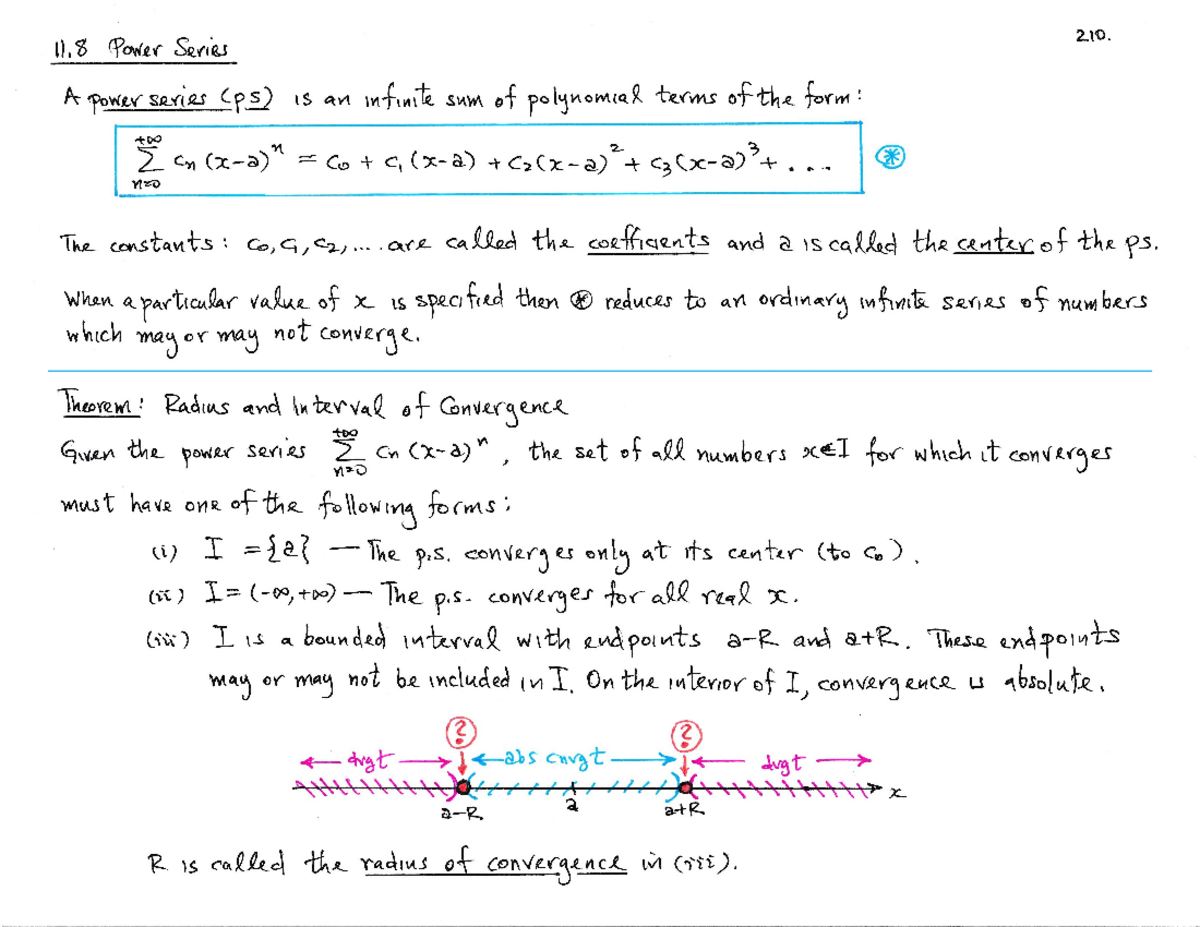 11.8 Power Series
210.
A power series (ps) is an infinite sum of polynomial terms of the form:
+∞ ∑ n=0 cn (x-a)^n = c0 + c1 (x-a) + c2 (x-a)^2 + c3 (x-a)^3 + .... ⊛
The constants: c0, c1, c2, .... are called the coefficients and a is called the center of the ps.
When a particular value of x is specified then ⊛ reduces to an ordinary infinite series of numbers
which may or may not converge.
Theorem: Radius and Interval of Convergence
Given the power series +∞ ∑ n=0 cn (x-a)^n, the set of all numbers x∈I for which it converges
must have one of the following forms:
(i) I = {a} — The p.s. converges only at its center (to c0).
(ii) I = (-∞, +∞) — The p.s. converges for all real x.
(iii) I is a bounded interval with endpoints a-R and a+R. These endpoints
may or may not be included in I. On the interior of I, convergence is absolute.
? ?
← dvgt → ↓ ← abs cnvgt → ↓ ← dvgt →
a-R a a+R x
R is called the radius of convergence in (iii).